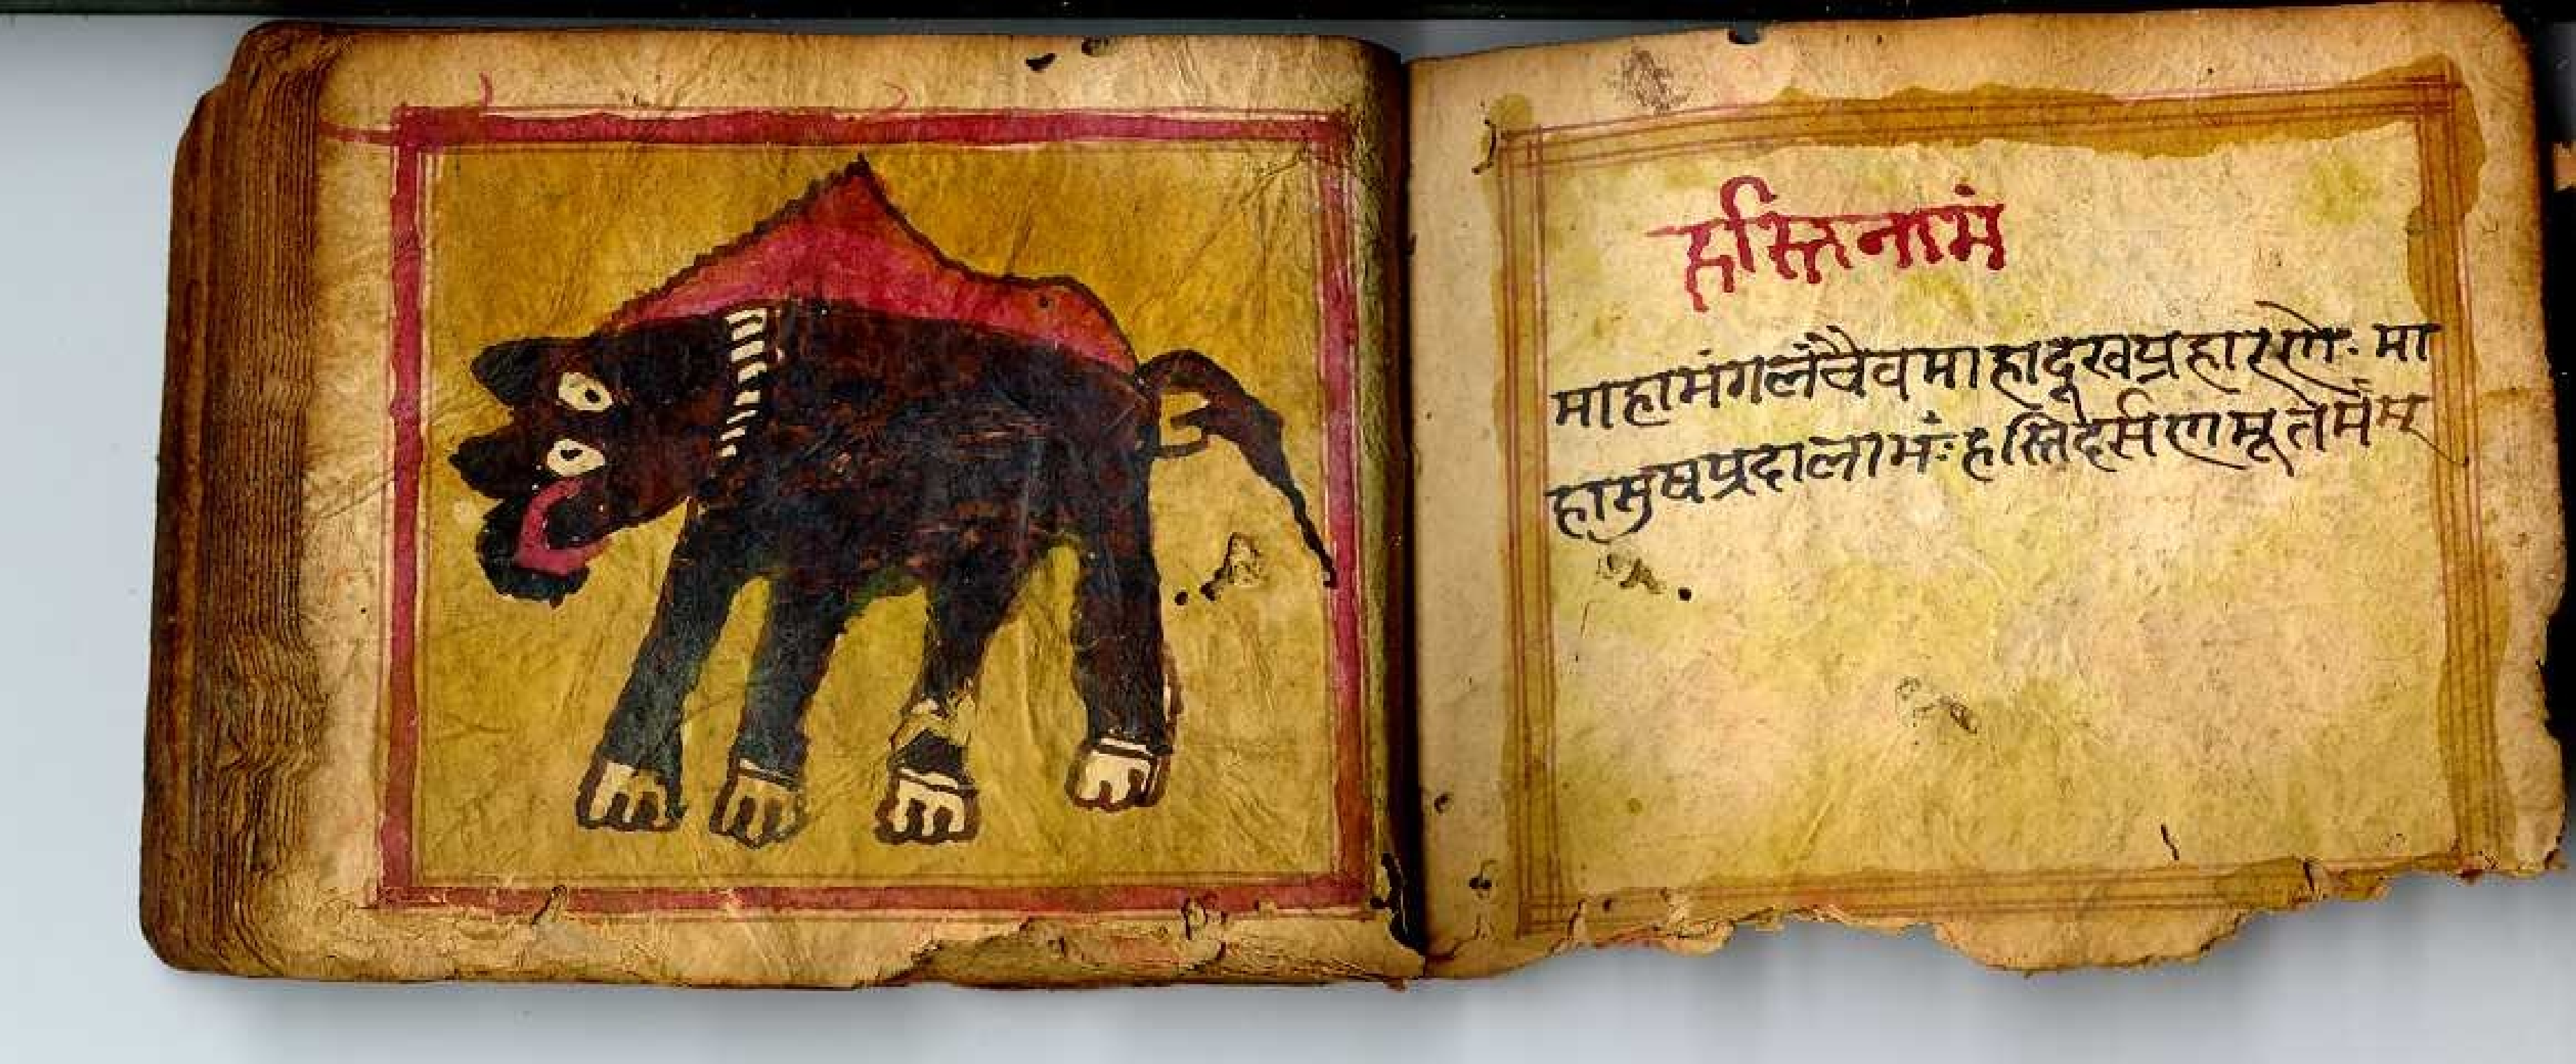 हस्तिनामं
माहामंगलंचैवमाहादूखप्रहारणे: मा
हासुखप्रदालाभं: हस्तिदर्सणमूतेमंम्